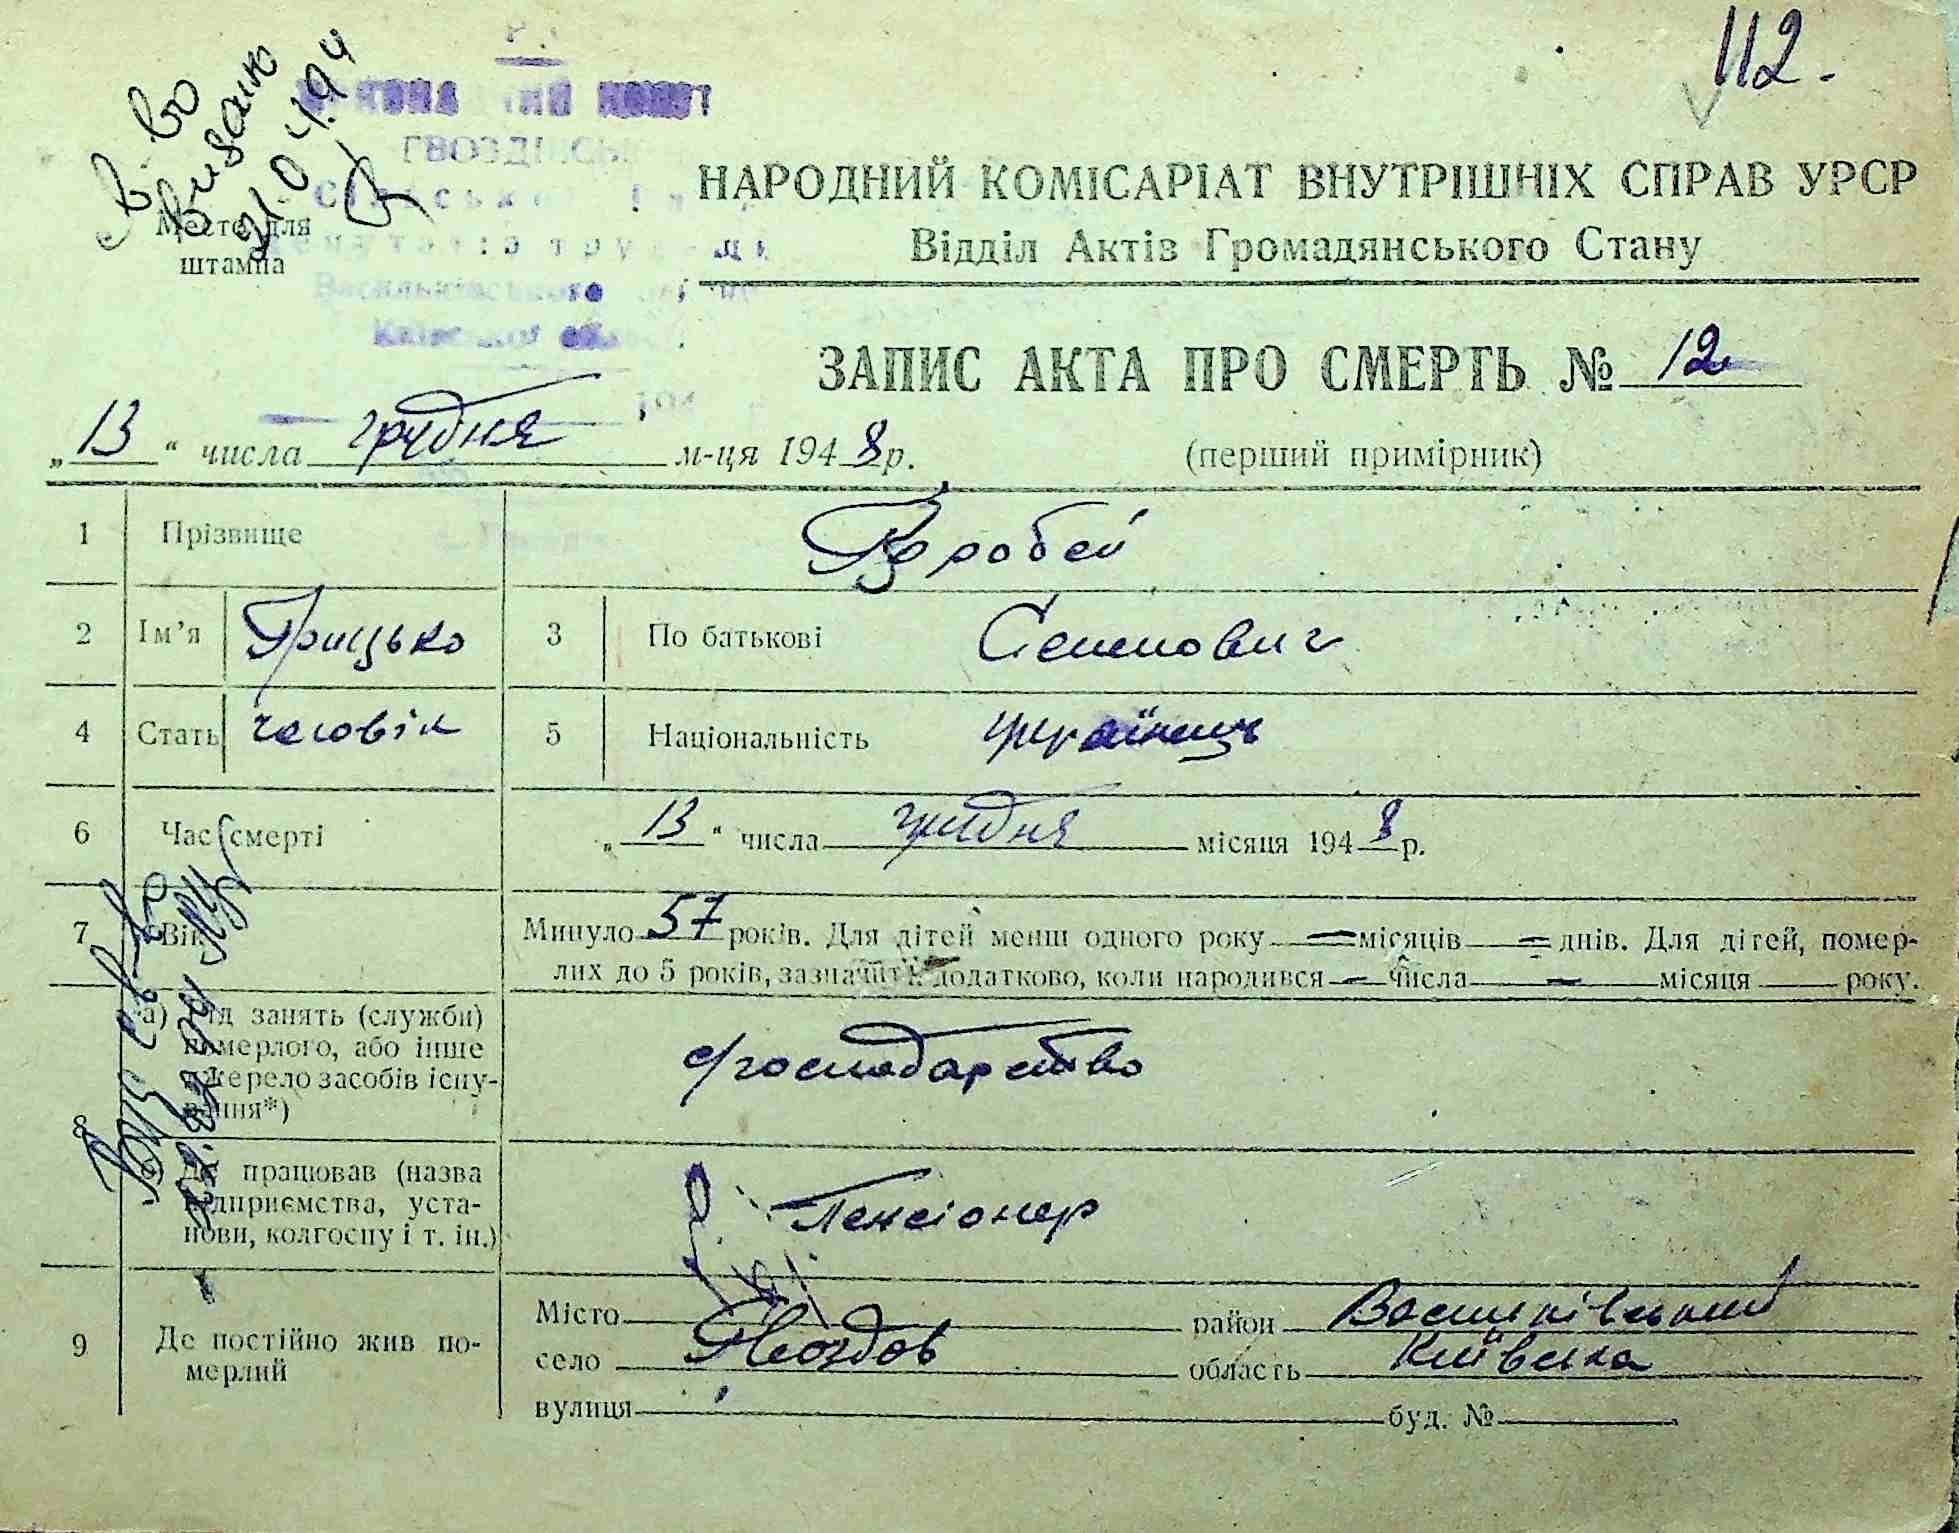 112.
В. во
видано
21.04.94
ГВОЗДІВСЬК
Васильківського
Київської
Место для
штампа
НАРОДНИЙ КОМІСАРІАТ ВНУТРІШНІХ СПРАВ УРСР
Відділ Актів Громадянського Стану
ЗАПИС АКТА ПРО СМЕРТЬ № 12
„13“ числа грудня м-ця 1948 р.
(перший примірник)
1 Прізвище Воробей
2 Ім’я Грицько 3 По батькові Семенович
4 Стать чоловік 5 Національність українець
6 Час смерті „13“ числа грудня місяця 1948 р.
7 Вік Минуло 57 років. Для дітей менш одного року — місяців — днів. Для дітей, помер-
лих до 5 років, зазначити додатково, коли народився — числа — місяця року.
8 а) Рід занять (служби)
померлого, або інше
джерело засобів існу-
вання*)
с/господарство
Де працював (назва
підприємства, уста-
нови, колгоспу і т. ін.)
Пенсіонер
9 Де постійно жив по-
мерлий
Місто район Васильківський
село Гвоздов область Київська
вулиця буд. №